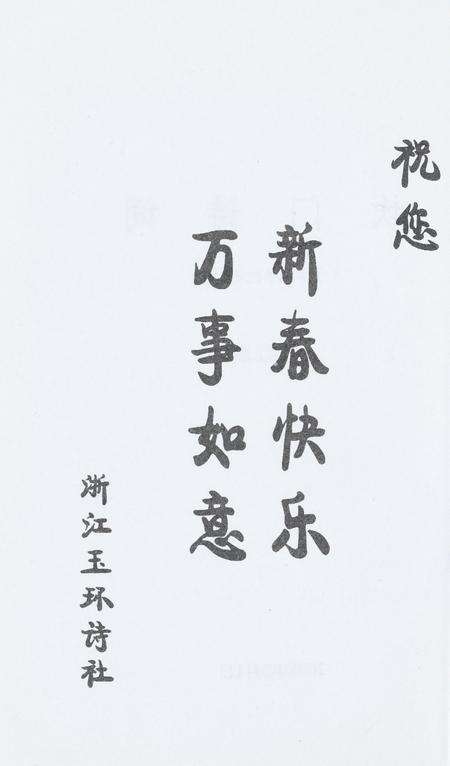 祝您
新春快乐
万事如意
浙江玉环诗社